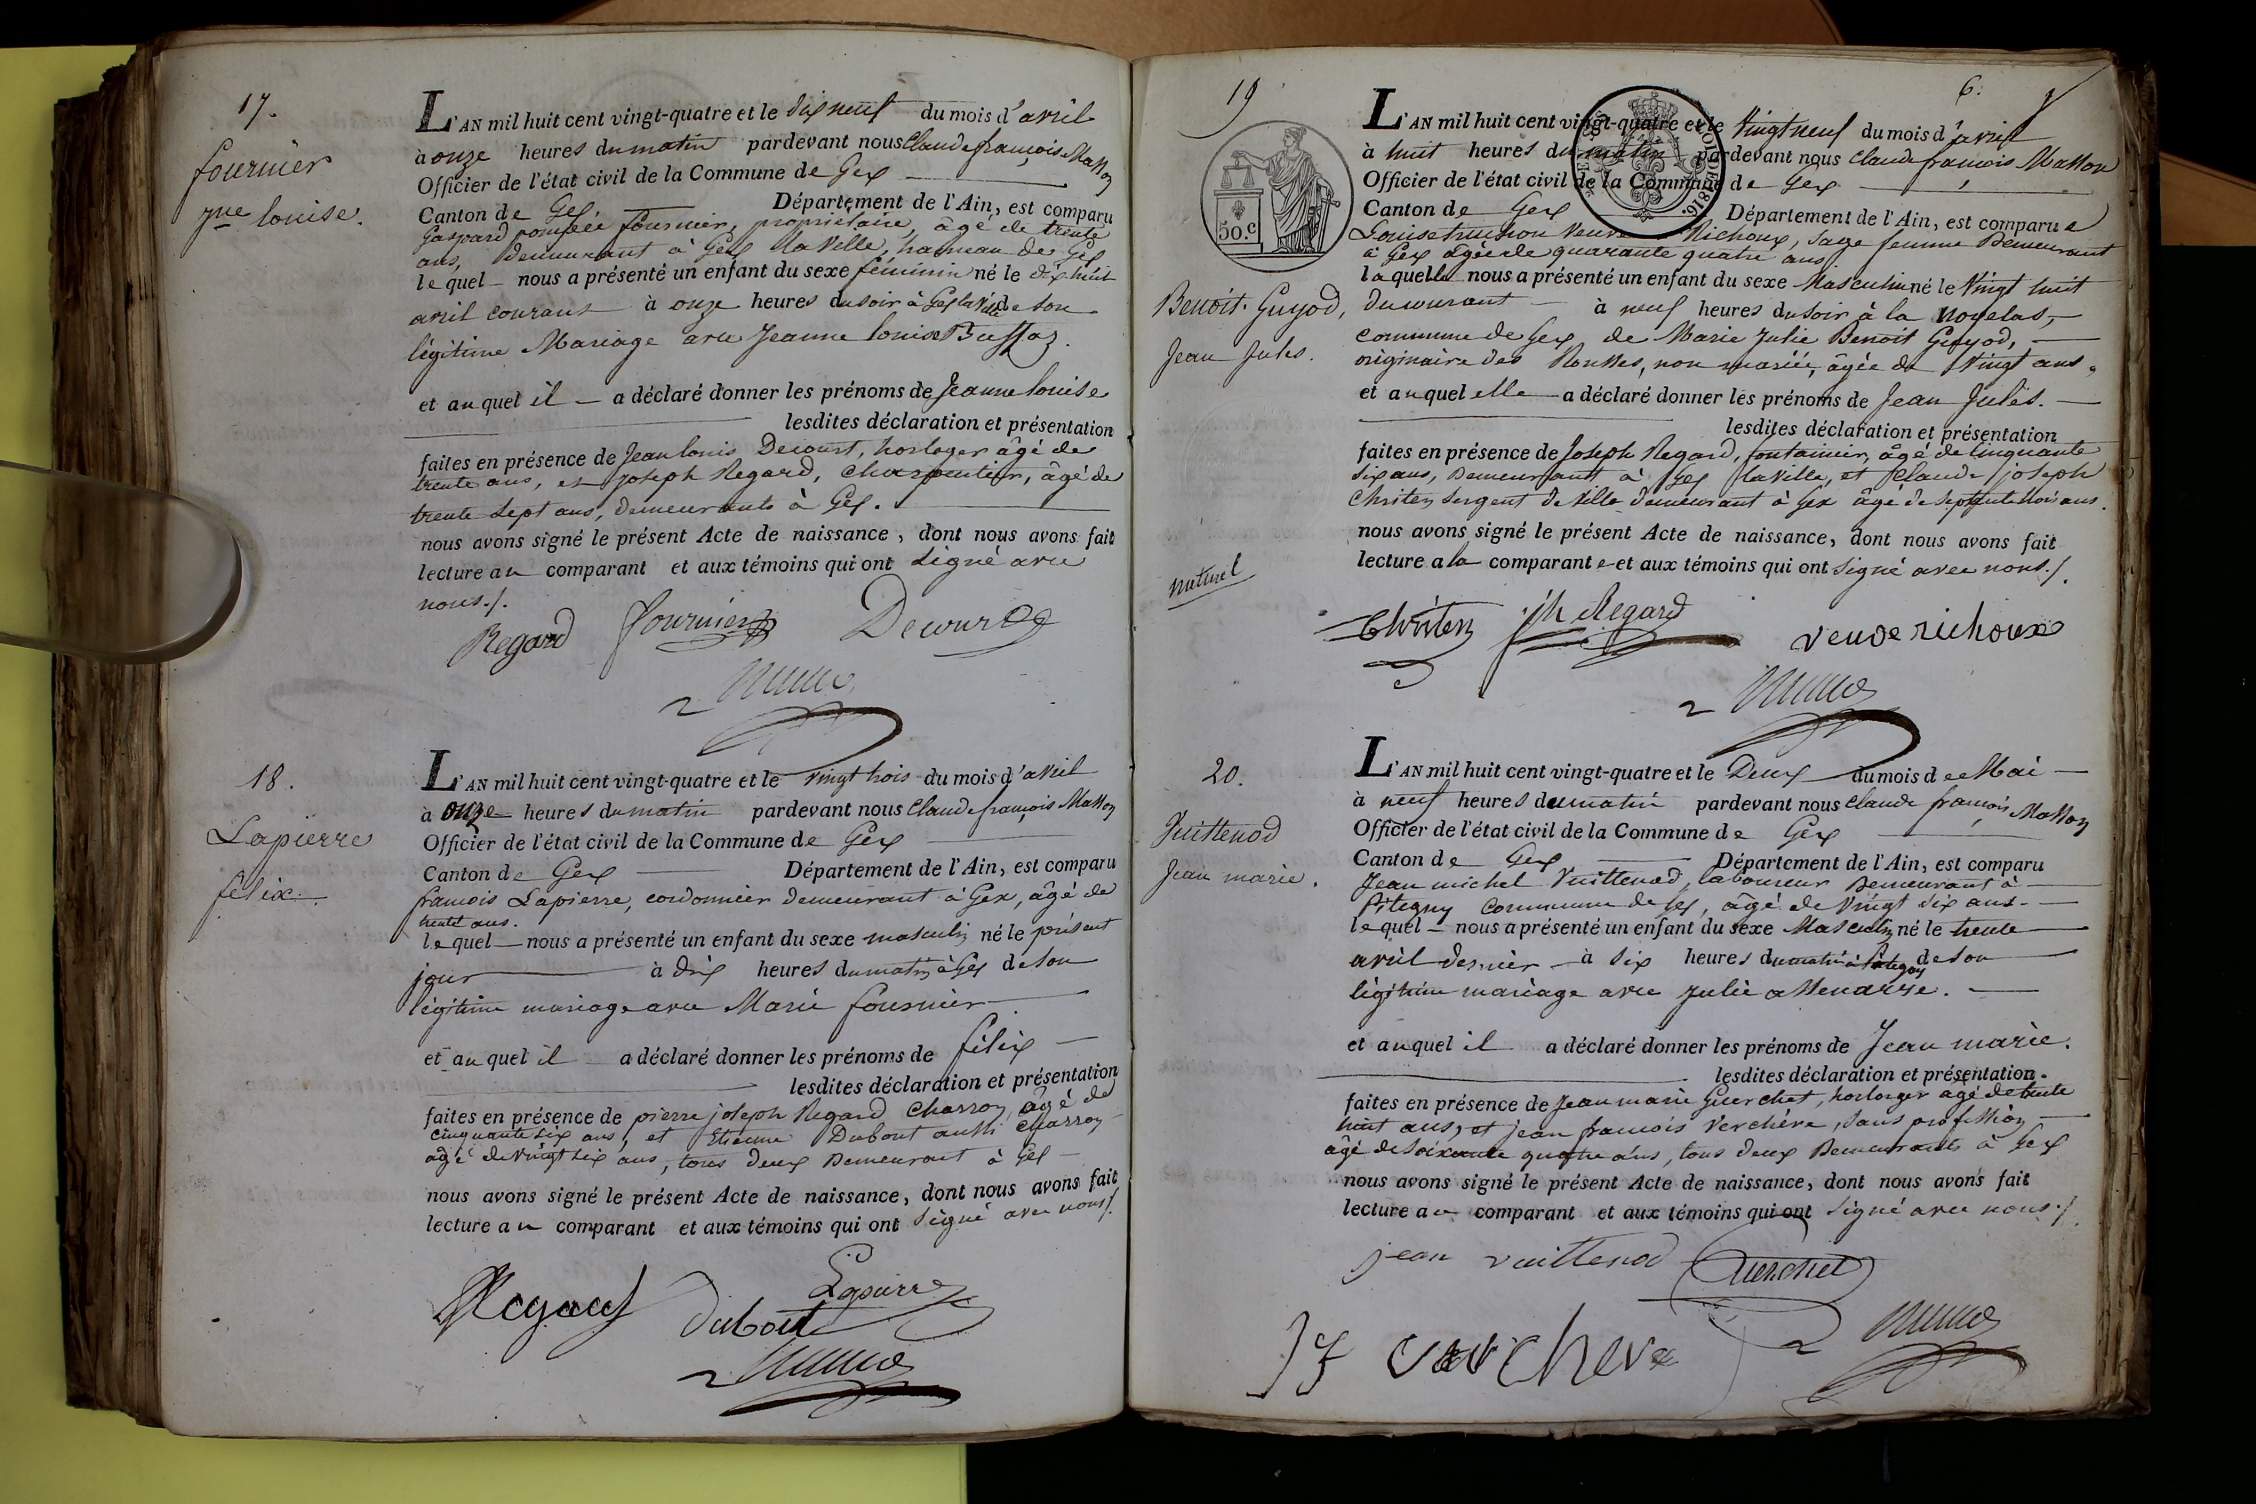 17.
fournier
jne louise.
L'AN mil huit cent vingt-quatre et le dix neuf du mois d'avril
à onze heures du matin pardevant nous Claude françois Masson
Officier de l'état civil de la Commune de Gex
Canton de Gex Département de l'Ain, est comparu
Gaspard pompée fournier, propriétaire, âgé de trente
ans, Demeurant à Gex la Ville, hameau de Gex
lequel nous a présenté un enfant du sexe féminin né le dix huit
avril courant à onze heures du soir à Gex la Ville de son
légitime Mariage avec Jeanne louise Bussoz.
et auquel il a déclaré donner les prénoms de Jeanne louise
lesdites déclaration et présentation
faites en présence de Jean louis Decourt, horloger âgé de
trente ans, et joseph Regard, charpentier, âgé de
trente sept ans, demeurants à Gex.
nous avons signé le présent Acte de naissance, dont nous avons fait
lecture au comparant et aux témoins qui ont signé avec
nous./.
Regard fournier Decourt
18.
Lapierre
félix.
L'AN mil huit cent vingt-quatre et le vingt trois du mois d'avril
à onze heures du matin pardevant nous Claude françois Masson
Officier de l'état civil de la Commune de Gex
Canton de Gex Département de l'Ain, est comparu
françois Lapierre, cordonnier demeurant à Gex, âgé de
trente ans.
lequel nous a présenté un enfant du sexe masculin né le présent
jour à dix heures du matin à Gex de son
légitime mariage avec Marie fournier
et auquel il a déclaré donner les prénoms de félix
lesdites déclaration et présentation
faites en présence de pierre joseph Regard charron, âgé de
cinquante six ans, et Etienne Dubout aussi charron
âgé de vingt six ans, tous deux Demeurant à Gex
nous avons signé le présent Acte de naissance, dont nous avons fait
lecture au comparant et aux témoins qui ont signé avec nous./.
Regard dubout Lapierre
6.
19
50.c
Benoit-Guyod,
Jean Jules.
naturel
L'AN mil huit cent vingt-quatre et le Vingt neuf du mois d'avril
à huit heures du matin pardevant nous Claude françois Masson
Officier de l'état civil de la Commune de Gex
Canton de Gex Département de l'Ain, est comparue
Louise Veuve Richoux, sage femme Demeurant
à Gex âgée de quarante quatre ans
laquelle nous a présenté un enfant du sexe Masculin né le Vingt huit
du courant à neuf heures du soir à la
commune de Gex de Marie Julie Benoit Guyod,
originaire des Rousses, non mariée, âgée de Vingt ans.
et auquel elle a déclaré donner les prénoms de Jean Jules.
lesdites déclaration et présentation
faites en présence de Joseph Regard, fontainier, âgé de Cinquante
six ans, Demeurant à Gex la Ville, et Claude joseph
Christen sergent de Ville demeurant à Gex âgé de septante trois ans.
nous avons signé le présent Acte de naissance, dont nous avons fait
lecture a la comparante et aux témoins qui ont signé avec nous./.
Christen jh Regard veuve richoux
20.
Vuittenod
Jean marie.
L'AN mil huit cent vingt-quatre et le Deux du mois de Mai
à neuf heures du matin pardevant nous Claude françois Masson
Officier de l'état civil de la Commune de Gex
Canton de Gex Département de l'Ain, est comparu
Jean michel Vuittenod, laboureur Demeurant à
Pitegny Commune de Gex, âgé de Vingt six ans.
lequel nous a présenté un enfant du sexe Masculin né le trente
avril dernier à six heures du matin à Pitegny de son
légitime mariage avec Julie
et auquel il a déclaré donner les prénoms de Jean marie.
lesdites déclaration et présentation.
faites en présence de Jean marie Guerchet, horloger âgé de trente
huit ans, et jean françois Verchère, sans profession
âgé de soixante quatre ans, tous deux Demeurants à Gex
nous avons signé le présent Acte de naissance, dont nous avons fait
lecture au comparant et aux témoins qui ont signé avec nous./.
jean vuittenod Guerchet
jf verchere